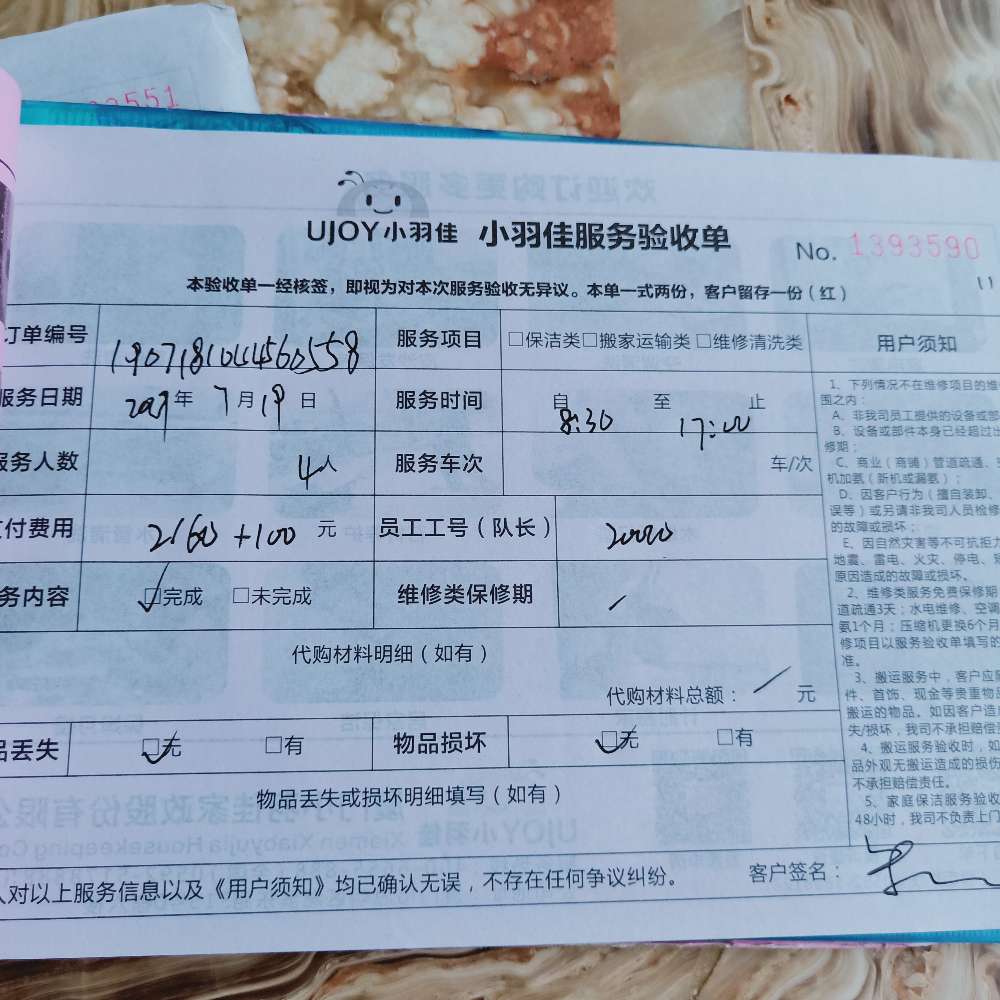 3551
UJOY小羽佳 小羽佳服务验收单
No. 1393590
本验收单一经核签，即视为对本次服务验收无异议。本单一式两份，客户留存一份（红）
订单编号 服务项目 □保洁类□搬家运输类□维修清洗类 用户须知
服务日期 年 7月19日 服务时间 自 8:30 至 17:00 止
服务人数 4人 服务车次 车/次
付费用 2160+100 元 员工工号（队长）
务内容 ☑完成 □未完成 维修类保修期 /
代购材料明细（如有）
代购材料总额： / 元
品丢失 ☑无 □有 物品损坏 ☑无 □有
物品丢失或损坏明细填写（如有）
人对以上服务信息以及《用户须知》均已确认无误，不存在任何争议纠纷。 客户签名：
1、下列情况不在维修项目的维
围之内：
A、非我司员工提供的设备或部
B、设备或部件本身已经超过出
修期；
C、商业（商铺）管道疏通、
机加氨（新机或漏氨）；
D、因客户行为（擅自装卸、
误等）或另请非我司人员检修
的故障或损坏；
E、因自然灾害等不可抗拒力
地震、雷电、火灾、停电、
原因造成的故障或损坏。
2、维修类服务免费保修期
道疏通3天；水电维修、空调
氨1个月；压缩机更换6个月
修项目以服务验收单填写的
准。
3、搬运服务中，客户应
件、首饰、现金等贵重物
搬运的物品。如因客户造
失/损坏，我司不承担赔偿
4、搬运服务验收时，如
品外观无搬运造成的损伤
不承担赔偿责任。
5、家庭保洁服务验收
48小时，我司不负责上门